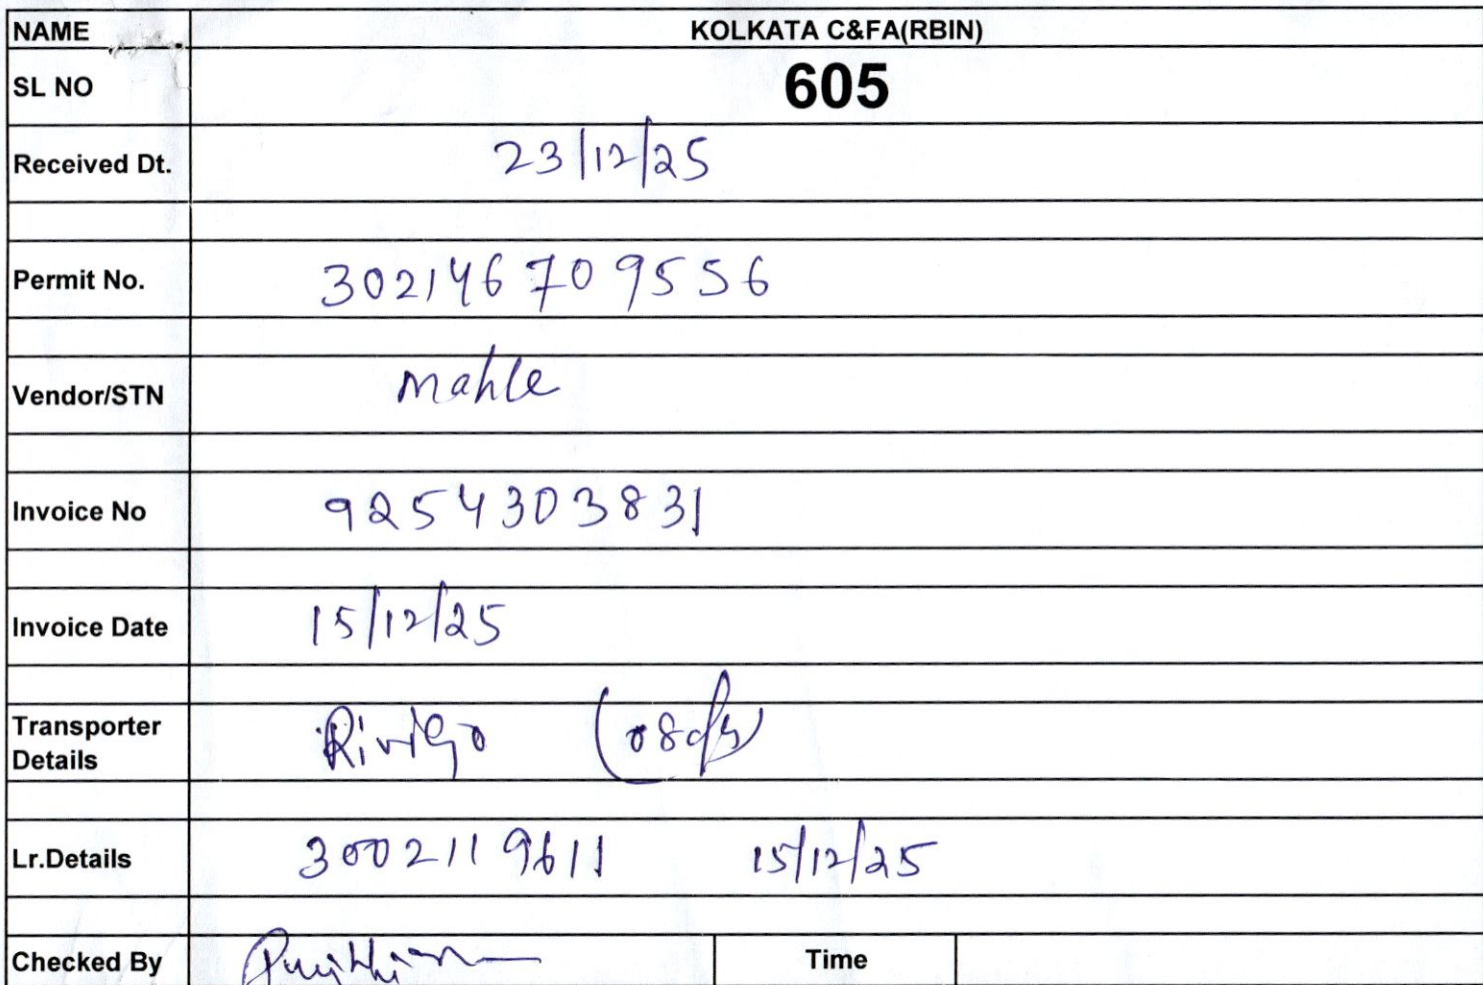 NAME KOLKATA C&FA(RBIN)
SL NO 605
Received Dt. 23/12/25
Permit No. 302146709556
Vendor/STN Mahle
Invoice No 9254303831
Invoice Date 15/12/25
Transporter Details Rivigo
Lr.Details 3002119611 15/12/25
Checked By Time